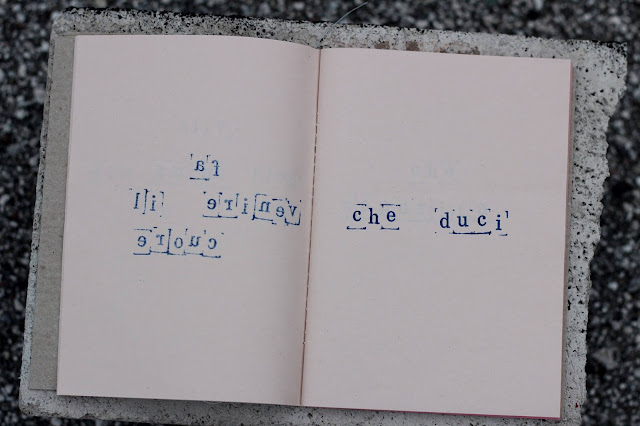 fa
venire il
cuore
che duci